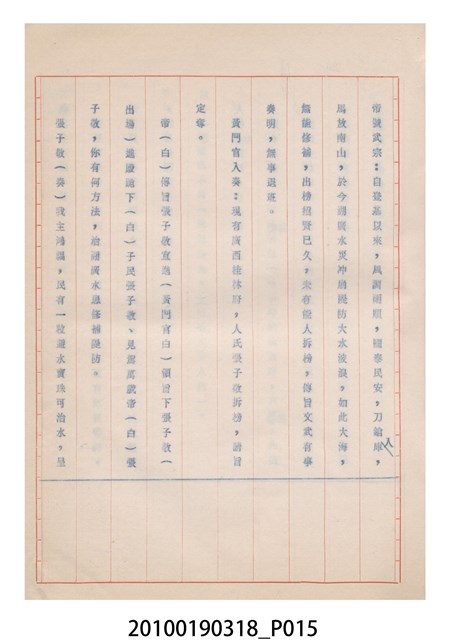 帝號武宗：自登基以來，風調雨順，國泰民安，刀鎗庫，
入
馬放南山，於今湖廣水災冲崩隄防大水後浪，如此大海，
無能修補，出榜招賢已久，未有能人拆榜，傳旨文武有事
奏明，無事退班。
黃門官入奏：現有廣西桂林府，人氏張子敬拆榜，請旨
定奪。
帝（白）傳旨張子敬宣進（黃門官白）領旨下張子敬（
出場）進殿跪下（白）子民張子敬、見駕萬歲帝（白）張
子敬，你有何方法，治湖廣水患修補隄防。
張子敬（奏）我主鴻福，民有一粒避水寶珠可治水，呈
20100190318_P015